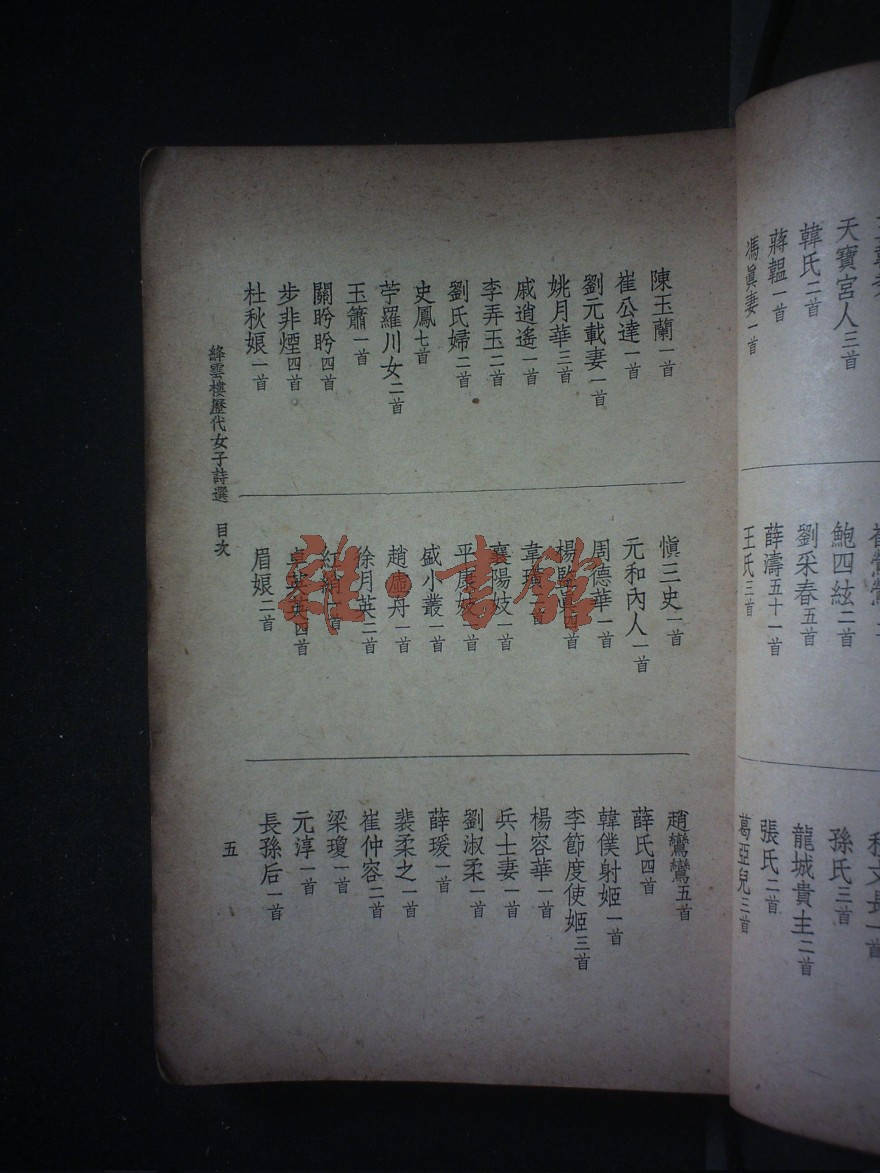 天寶宮人三首
韓氏二首
蔣韞一首
馮眞妻一首
鮑四絃二首
劉采春五首
薛濤五十一首
王氏三首
孫氏三首
龍城貴主二首
張氏二首
葛亞兒三首
陳玉蘭一首
崔公達一首
劉元載妻一首
姚月華三首
戚逍遙一首
李弄玉二首
劉氏婦二首
史鳳七首
苧羅川女二首
玉簫一首
關盼盼四首
步非煙四首
杜秋娘一首
愼三史一首
元和內人一首
周德華一首
楊監眞四首
韋璜二首
襄陽妓一首
平康妓一首
盛小叢一首
趙虛舟一首
徐月英二首
紅綃首
卓英英四首
眉娘二首
趙鸞鸞五首
薛氏四首
韓僕射姬一首
李節度使姬三首
楊容華一首
兵士妻一首
劉淑柔一首
薛瑗一首
裴柔之一首
崔仲容二首
梁瓊一首
元淳一首
長孫后一首
絳雲樓歷代女子詩選 目次
五
雜·書館